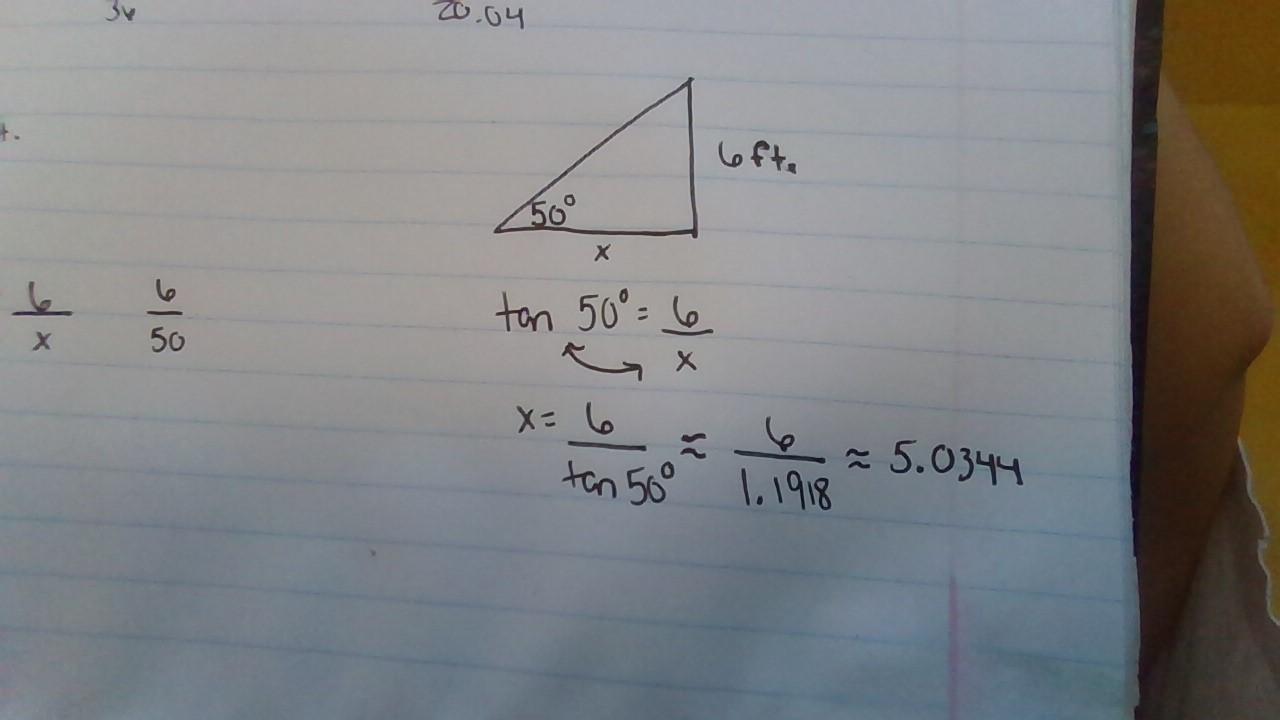 20.04
6 ft.
50°
x
6/x 6/50
tan 50° = 6/x
x = 6/tan 50° ≈ 6/1.1918 ≈ 5.0344